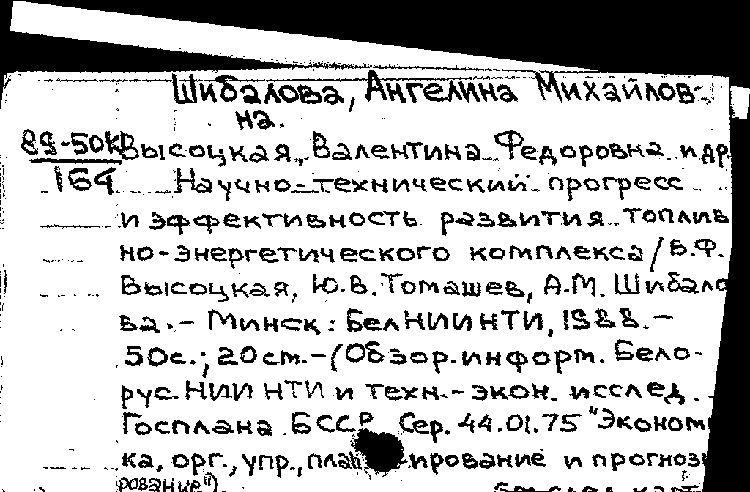 Шибалова, Ангелина Михайлов-
на.
89-50к Высоцкая, Валентина Федоровна и др
164 Научно-технический прогресс
и эффективность развития топлив
но-энергетического комплекса / В.Ф.
Высоцкая, Ю.В. Томашев, А.М. Шибало
ва. - Минск: БелНИИНТИ, 1988. -
50с.; 20 ст. - (Обзор. информ. Бело-
рус. НИИ НТИ и техн.-экон. исслед.
Госплана БССР. Сер. 44.01.75 "Эконом
ка, орг., упр., пла ирование и прогноз
рование").